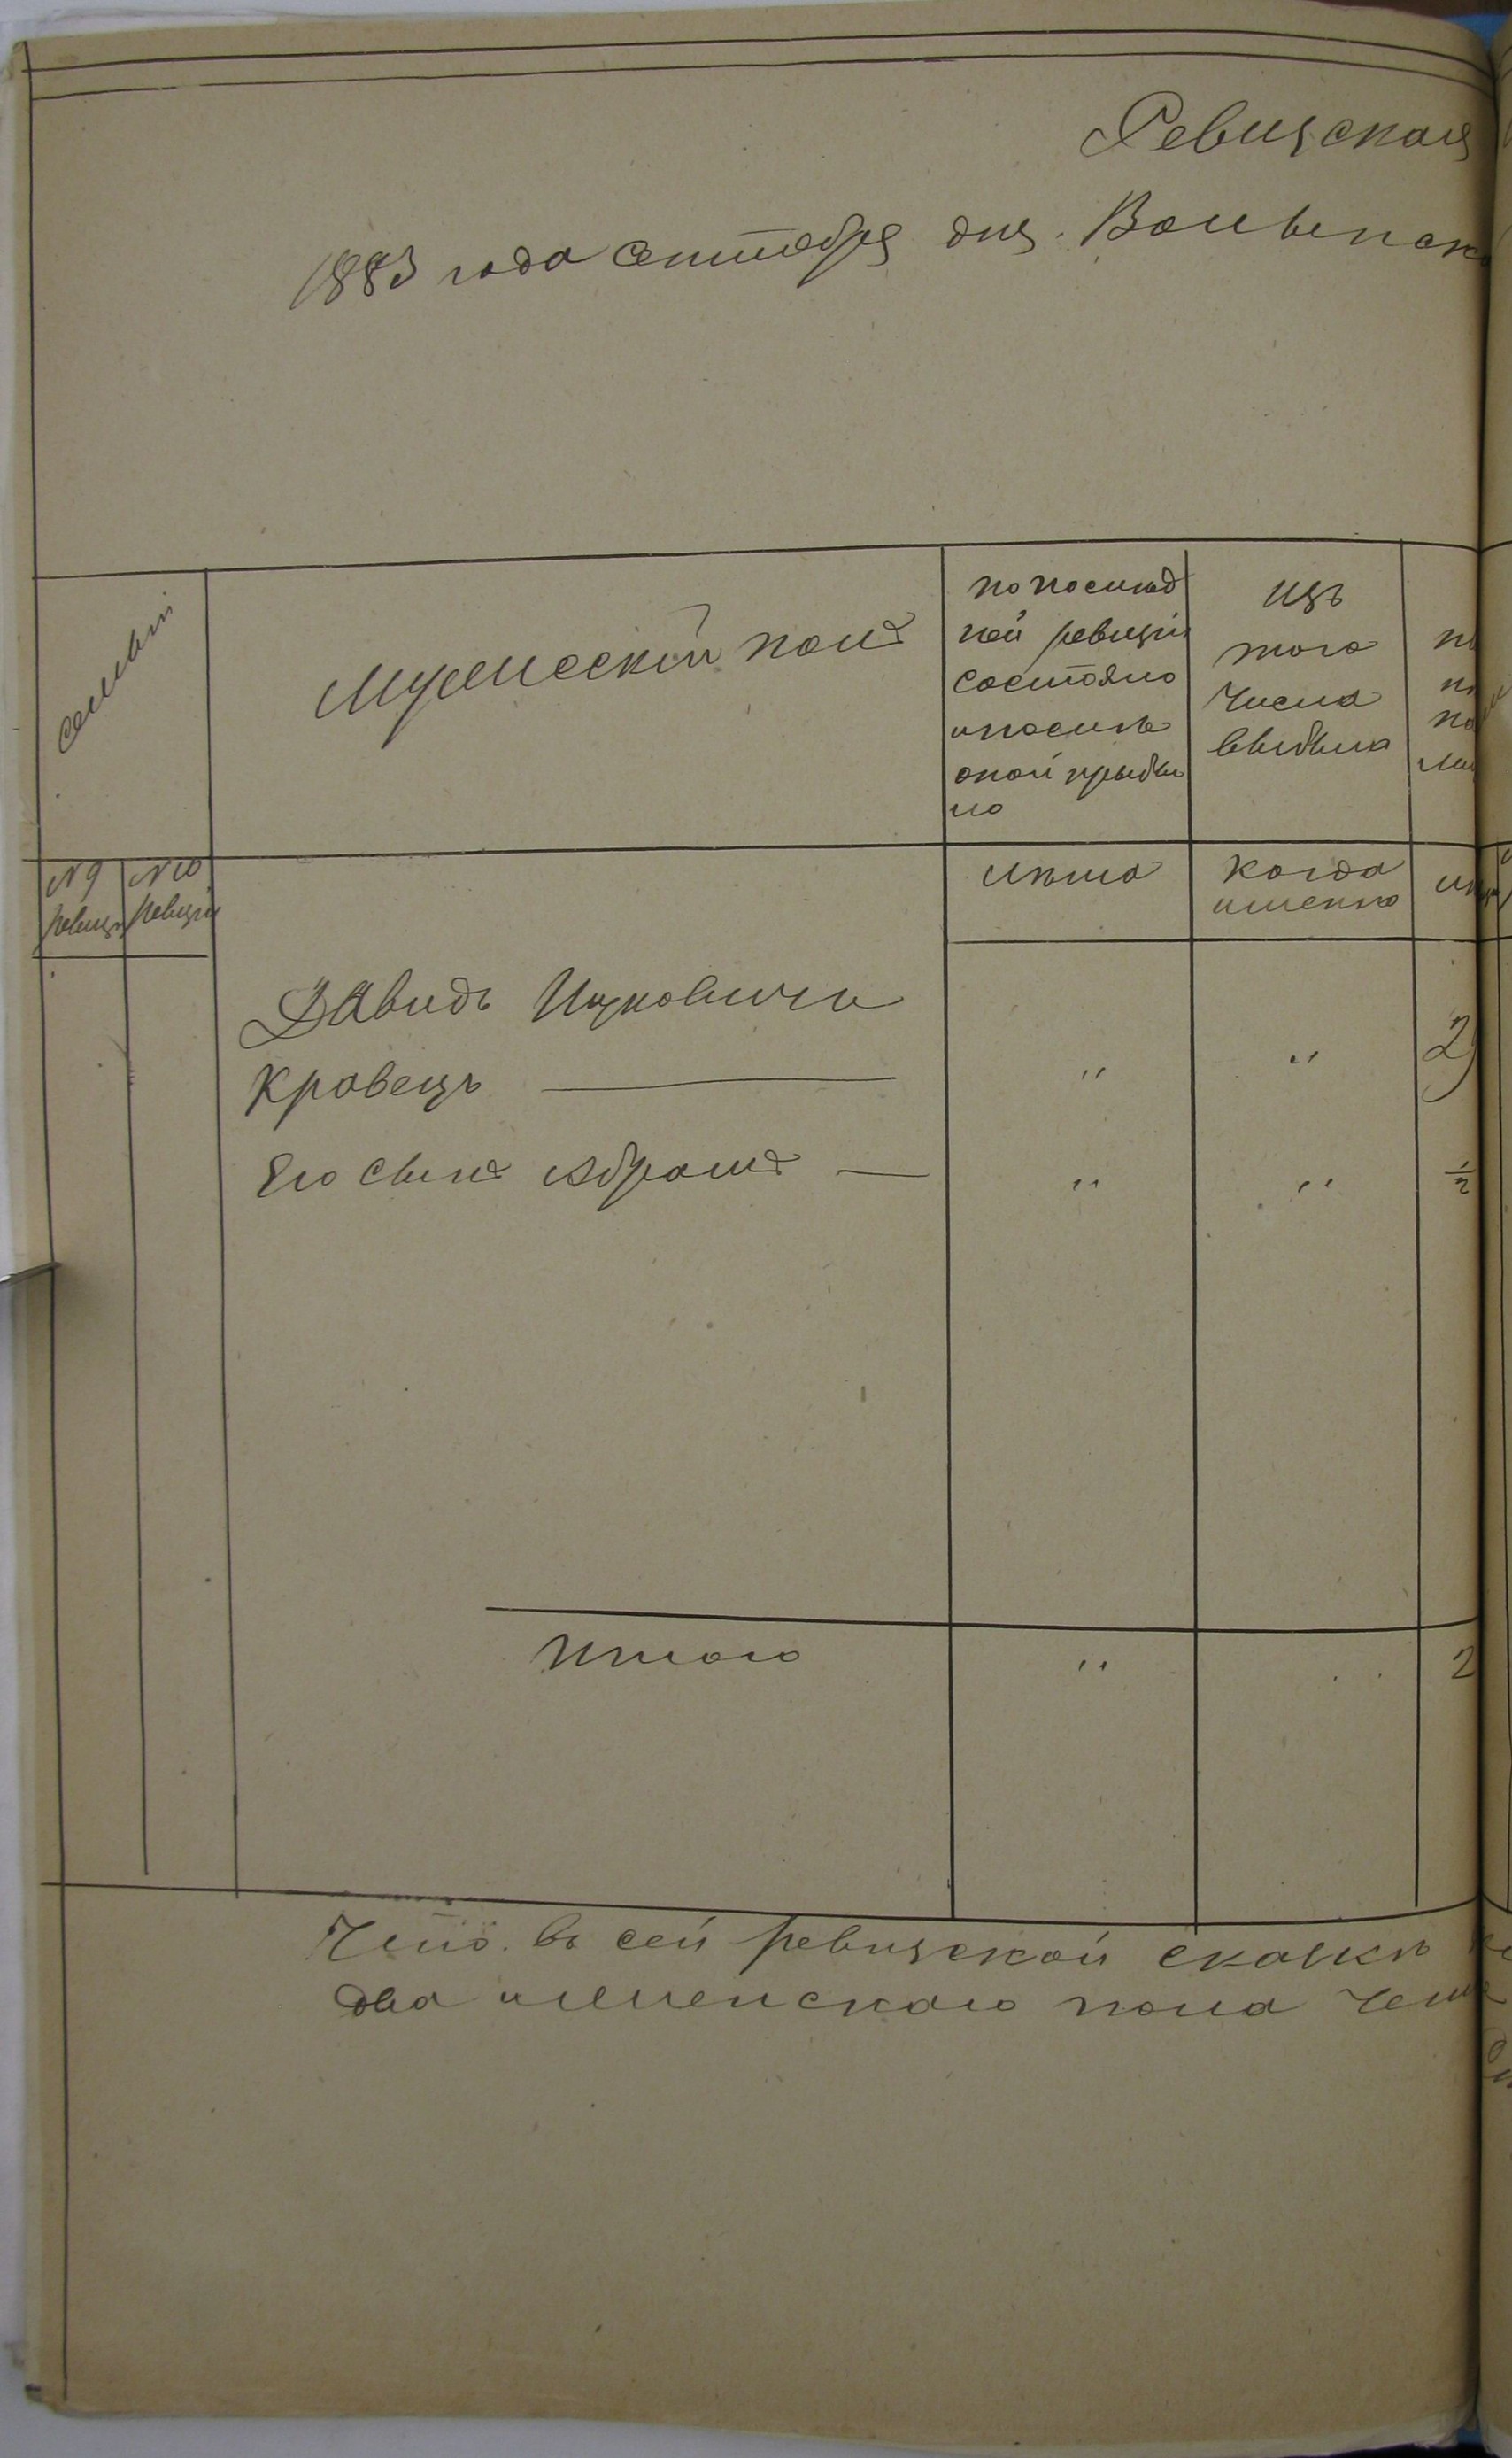 Ревизская
1883 года сентября дня. Волынск
семьи
Мужескій полъ
по послѣд
ней ревизіи
состояло
и послѣ
оной прибы
ло
изъ
того
числа
выбыло
№ 9
ревизіи
№ 10
ревизіи
лѣта
когда
именно
Давидъ Ицковичъ
Кровецъ
" " 2
Его сынъ Абрамъ —
" " 1/2
Итого " 2
Что въ сей ревизской сказкѣ
два и женскаго пола